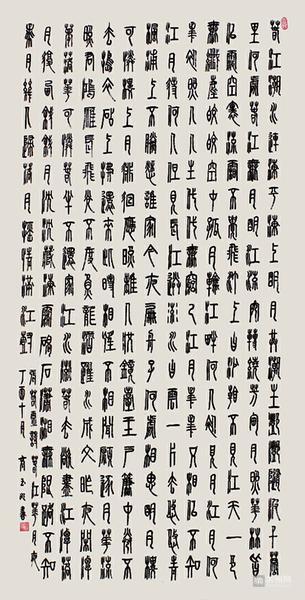 春江潮水連海平海上明月共潮生灩灩隨波千萬
里何處春江無月明江流宛轉繞芳甸月照花林皆
似霰空里流霜不覺飛汀上白沙看不見江天一色
無纖塵皎皎空中孤月輪江畔何人初見月江月何
年初照人人生代代無窮已江月年年望相似不知
江月待何人但見長江送流水白雲一片去悠悠青
楓浦上不勝愁誰家今夜扁舟子何處相思明月樓
可憐樓上月徘徊應照離人妝鏡臺玉戶簾中卷不
去搗衣砧上拂還來此時相望不相聞願逐月華流
照君鴻雁長飛光不度魚龍潛躍水成文昨夜閒潭
夢落花可憐春半不還家江水流春去欲盡江潭落
月復西斜斜月沉沉藏海霧碣石瀟湘無限路不知
乘月幾人歸落月搖情滿江樹
張若虛詩春江花月夜
丁酉十月